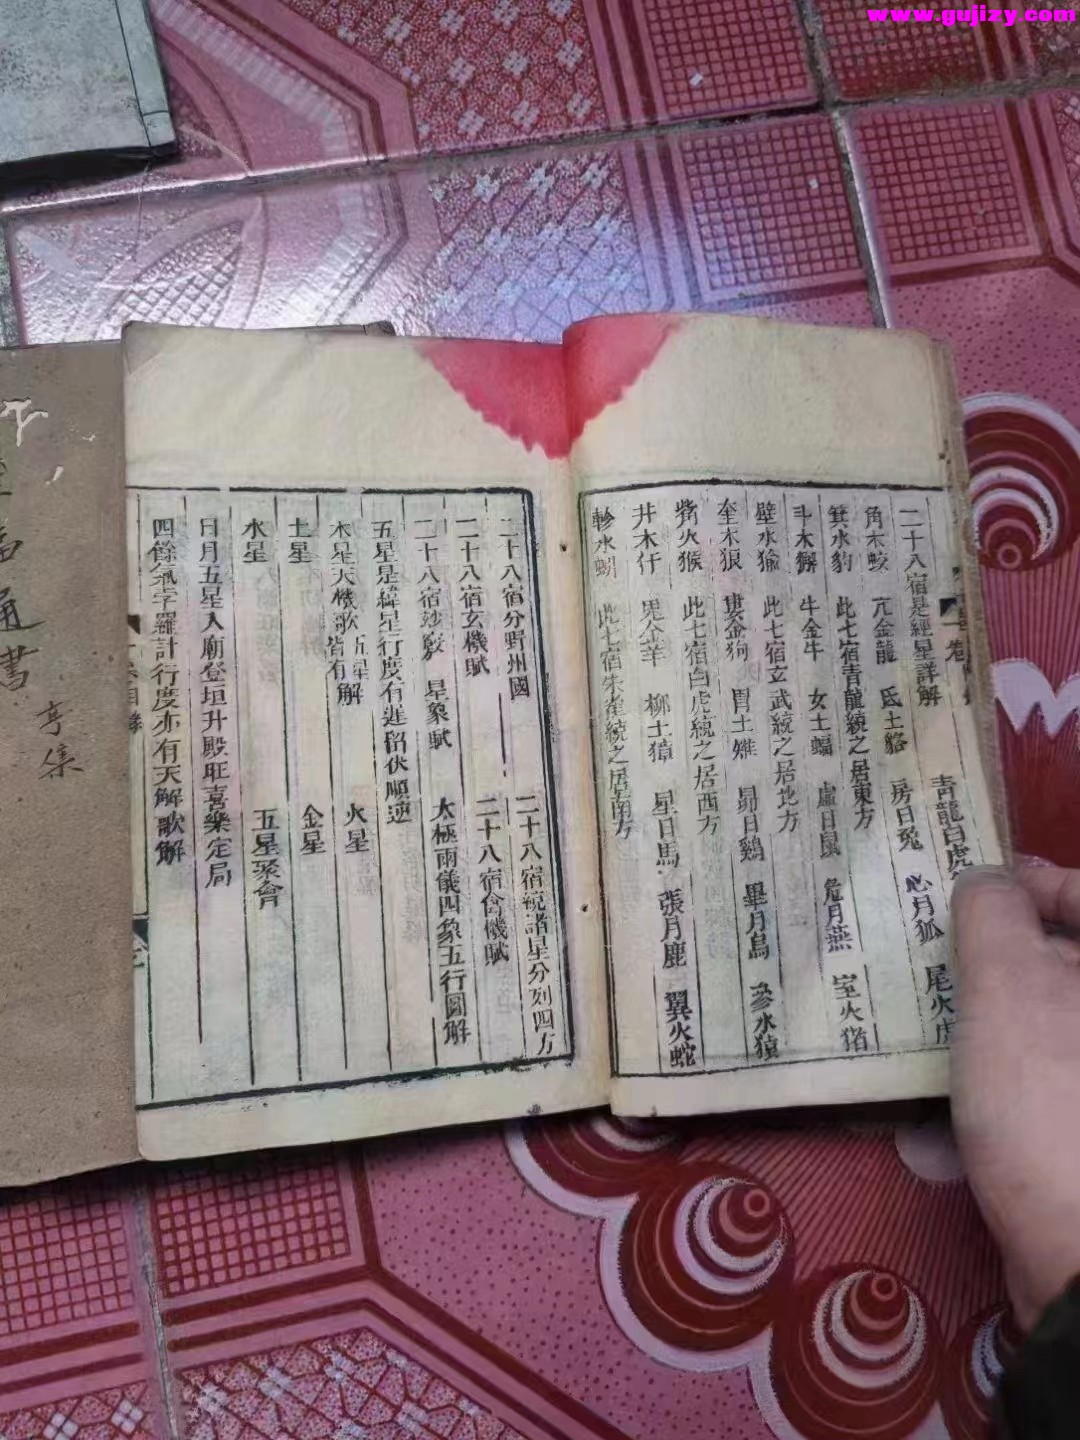 www.gujizy.com
二十八宿是經星詳解 青龍白虎
角木蛟 亢金龍 氐土貉 房日兎 心月狐 尾火虎
箕水豹 此七宿青龍統之居東方
斗木獬 牛金牛 女土蝠 虛日鼠 危月燕 室火猪
壁水㺄 此七宿玄武統之居北方
奎木狼 婁金狗 胃土雉 昴日鷄 畢月烏 參水猿
觜火猴 此七宿白虎統之居西方
井木犴 鬼金羊 柳土獐 星日馬 張月鹿 翼火蛇
軫水蚓 此七宿朱雀統之居南方
二十八宿分野州國 二十八宿統諸星分列四方
二十八宿玄機賦 二十八宿禽機賦
二十八宿妙斅 星象賦 太極兩儀四象五行圖解
五星是緯星行度有遲留伏順逆
木星天機歌 五星皆有解 火星
土星 金星
水星 五星聚會
日月五星入廟登垣升殿旺喜樂定局
四餘氣孛羅計行度亦有天解歌解
通書
亨集